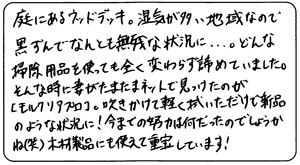 庭にあるウッドデッキ。湿気が多い地域なので
黒ずんでなんとも無残な状況に…。どんな
掃除用品を使っても全く変わらず諦めていました。
そんな時に妻がたまたまネットで見つけたのが
吹きかけて軽く拭いただけで新品
のような状況に!今までの努力は何だったのでしょうか
ね(笑)木材製品にも使えて重宝しています!